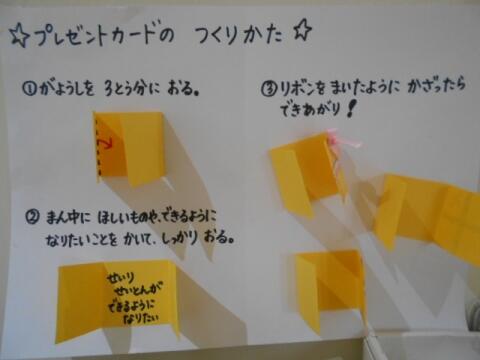 ☆プレゼントカードの つくりかた☆
①がようしを 3とう分に おる。
②まん中に ほしいものや、できるように
なりたいことを かいて、しっかり おる。
せいり
せいとんが
できるように
なりたい
③リボンを まいたように かざったら
できあがり!